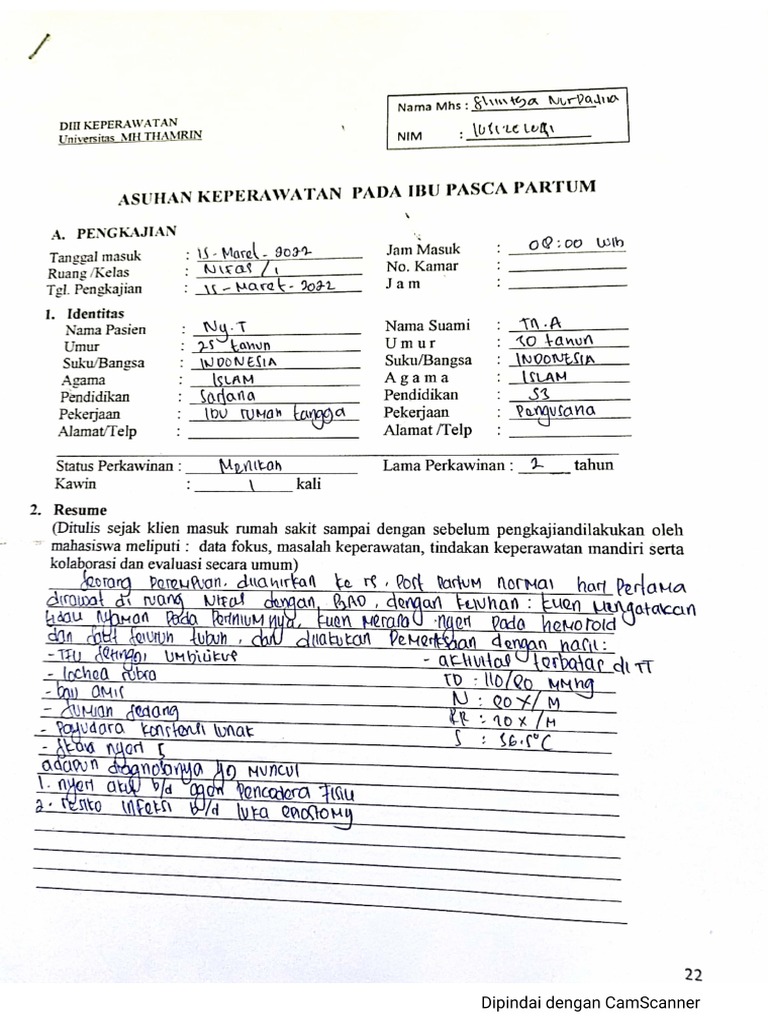 DIII KEPERAWATAN
Universitas MH THAMRIN
Nama Mhs :
NIM :
ASUHAN KEPERAWATAN PADA IBU PASCA PARTUM
A. PENGKAJIAN
Tanggal masuk : 15-Maret-2022 Jam Masuk : 08:00 wib
Ruang /Kelas : Nifas / 1 No. Kamar :
Tgl. Pengkajian : 15-Maret-2022 J a m :
1. Identitas
Nama Pasien : Ny.T Nama Suami : Tn.A
Umur : 25 tahun U m u r : 30 tahun
Suku/Bangsa : INDONESIA Suku/Bangsa : INDONESIA
Agama : ISLAM A g a m a : ISLAM
Pendidikan : Sarjana Pendidikan : S3
Pekerjaan : Ibu rumah tangga Pekerjaan : Pengusaha
Alamat/Telp : Alamat /Telp :
Status Perkawinan : Menikah Lama Perkawinan : 2 tahun
Kawin : 1 kali
2. Resume
(Ditulis sejak klien masuk rumah sakit sampai dengan sebelum pengkajiandilakukan oleh
mahasiswa meliputi : data fokus, masalah keperawatan, tindakan keperawatan mandiri serta
kolaborasi dan evaluasi secara umum)
Seorang perempuan, dilahirkan ke rs, post partum normal hari pertama
dirawat di ruang Nifas dengan, dengan keluhan: klien mengatakan
tidak nyaman pada periniumnya, klien merasa nyeri pada hemoroid
dan seluruh tubuh, dan dilakukan pemeriksaan dengan hasil:
- TFU setinggi umbilikus - aktivitas terbatas di TT
- lochea rubra TD : 110/80 mmHg
- bau amis N : 80 x/M
- jumlah sedang RR : 20 x/M
- payudara konstensi lunak S : 36.5°C
- skala nyeri 5
adapun diagnosanya yg muncul
1. nyeri akut b/d agen pencedera fisik
2. resiko infeksi b/d luka
22
Dipindai dengan CamScanner